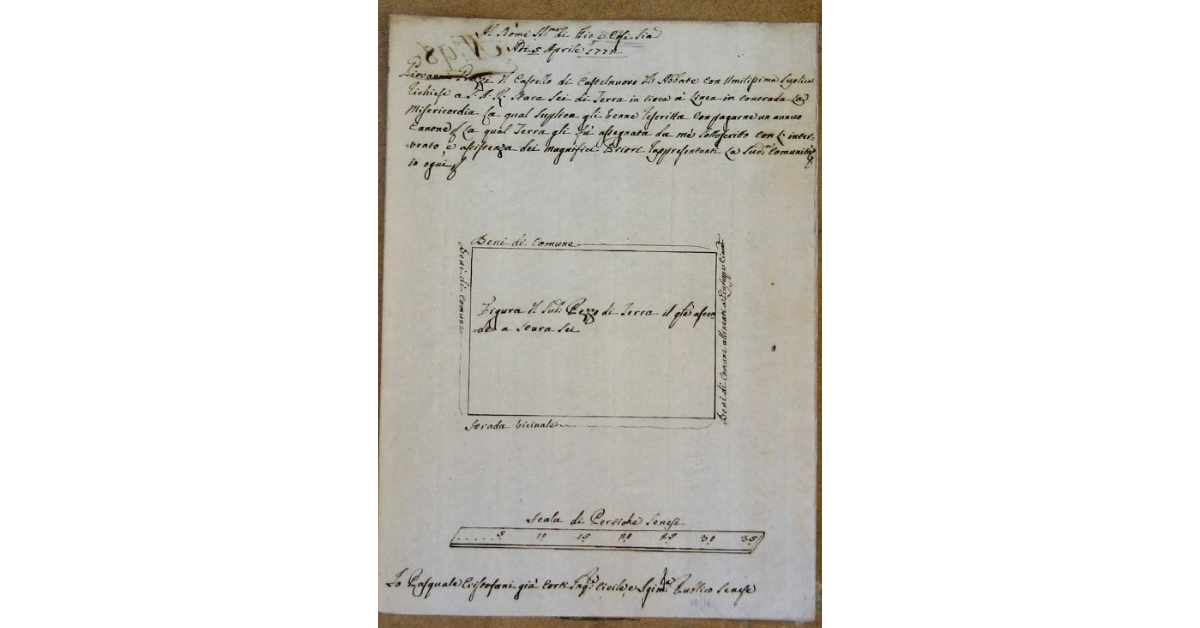 Al Nome SS.mo di Dio e Così Sia
Adì 5 Aprile 1771
Giovanni di Castello di Castelnuovo dell Abbate con Umilissima Suplica
richiese a S. A. R. Stara Sei di Terra in circa à Linea in contrada La
Misericordia La qual Suplica gli venne rescritta con pagarne un annuo
Canone La qual Terra gli fù assegnata da me Sottoscritto con L'inter-
vento e assistenza dei Magnifici Priori rappresentanti La Sud.a Comunità
in ogni
Beni di Comune
Beni di Comune
Beni di Comune
Figura del Sud.o Pezzo di Terra il qle ascen
de a Stara Sei
Strada Vicinale
Scala di Pertiche Senesi
5 10 15 20 25 30 35
Io Pasquale Cristofani già Corti Ing.re Civile e Pub\lico Senese